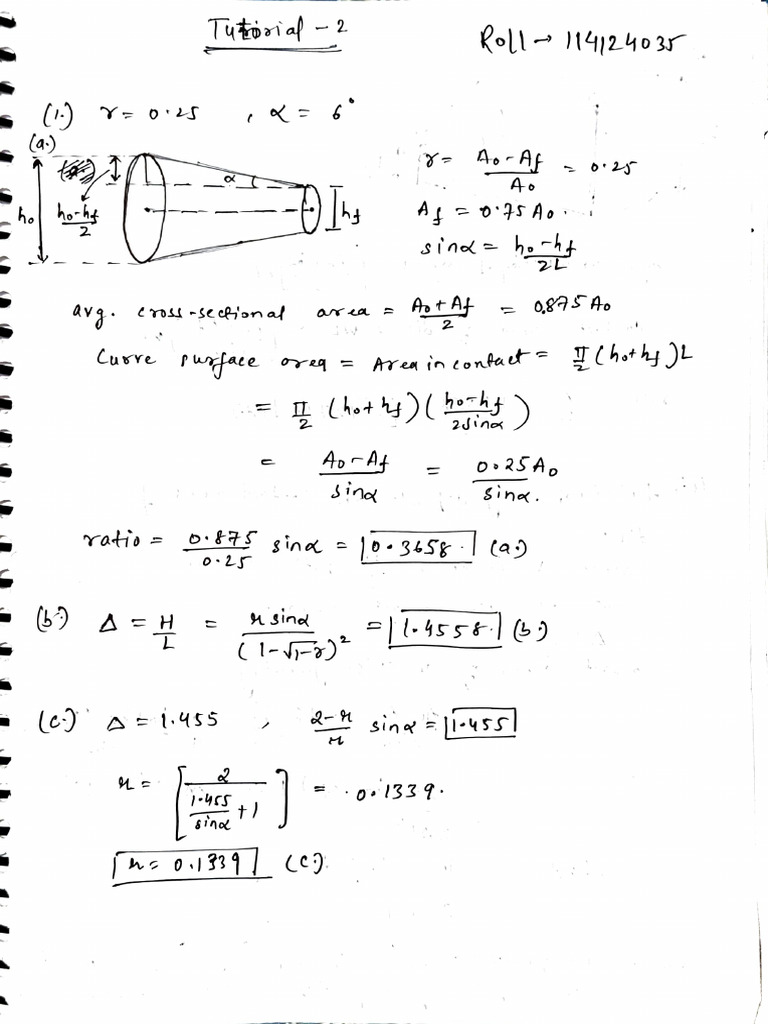 Tutorial - 2
Roll → 114124035
(1.) r = 0.25 , α = 6°
(a.)
h₀
h₀-h_f / 2
α
h_f
r = A₀-A_f / A₀ = 0.25
A_f = 0.75 A₀.
sinα = h₀-h_f / 2L
avg. cross-sectional area = A₀+A_f / 2 = 0.875 A₀
Curve surface area = Area in contact = π/2 (h₀+h_f) L
= π/2 (h₀+h_f) (h₀-h_f / 2sinα)
= A₀-A_f / sinα = 0.25 A₀ / sinα.
ratio = 0.875 / 0.25 sinα = 0.3658. (a.)
(b.) Δ = H/L = r sinα / (1-√1-r)² = 1.4558. (b.)
(c.) Δ = 1.455 , 2-r / r sinα = 1.455
r = [2 / (1.455 / sinα + 1)] = 0.1339.
r = 0.1339 (c.)